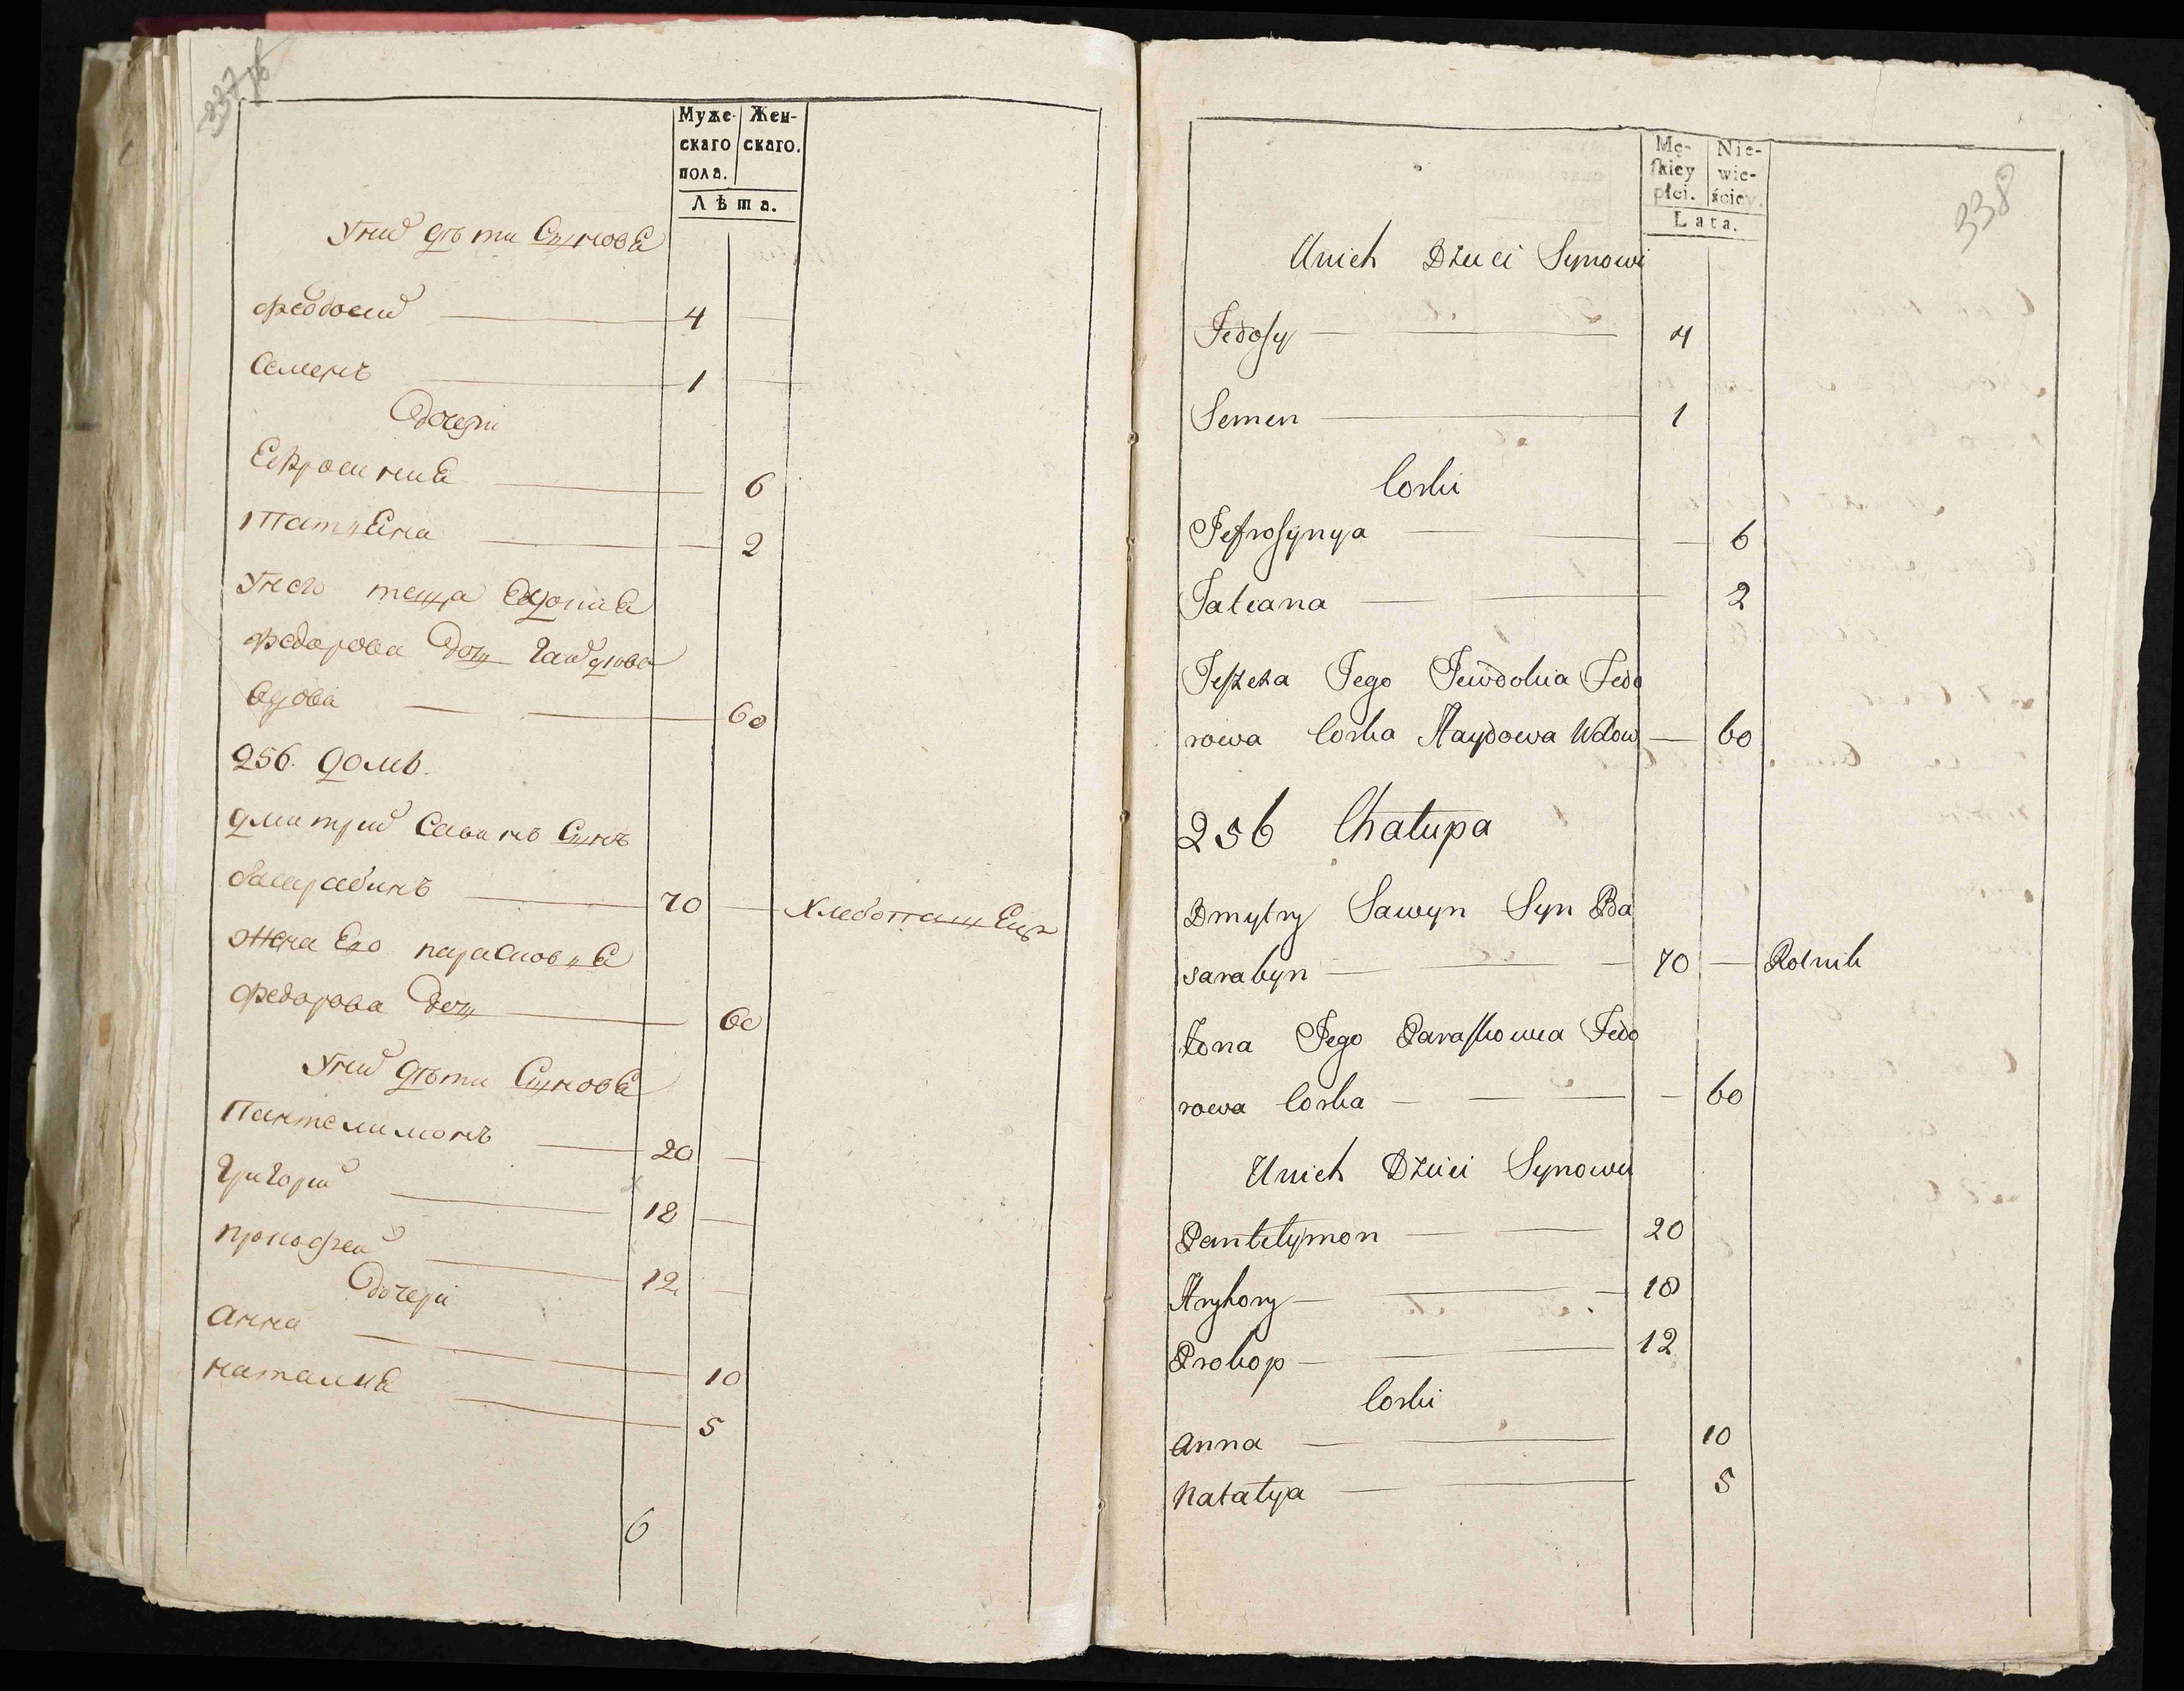 337 об
Муже- Жен-
скаго скаго.
пола.
Лѣта.
У ниⷯ дѣти Сынове
Феодосий 4
Семенъ 1
Дочери
Ефросиниа 6
Татиана 2
У него теща Евдокиа
Федорова дочь Гайдукова
вдова 60
256. домъ.
Дмитрий Савинъ Сынъ
басарабинъ 70 Хлебопашец
Жена Его парасковиа
Федорова дочь 60
У них дѣти Сынове
Пантелимонъ 20
Григорий 18
прокофей 12
Дочери
Анна 10
наталиа 5
6
338
Mę- Nie-
skiey wie-
płci. ściey.
Lata.
Unich Dzieci Synowi
Fedosy 4
Semen 1
Corki
Jefrosynya 6
Tatiana 2
Teszcza Jego Jewdokia Fedo
rowa Corka Haydowa Wdow 60
256 Chałupa
Dmytry Sawyn Syn Ba
sarabyn 70 Rolnik
Żona Jego Paraskowia Fedo
rowa Corka 60
Unich Dzieci Synowie
Pantelymon 20
Hryhory 18
Prokop 12
Corki
Anna 10
Natalya 5